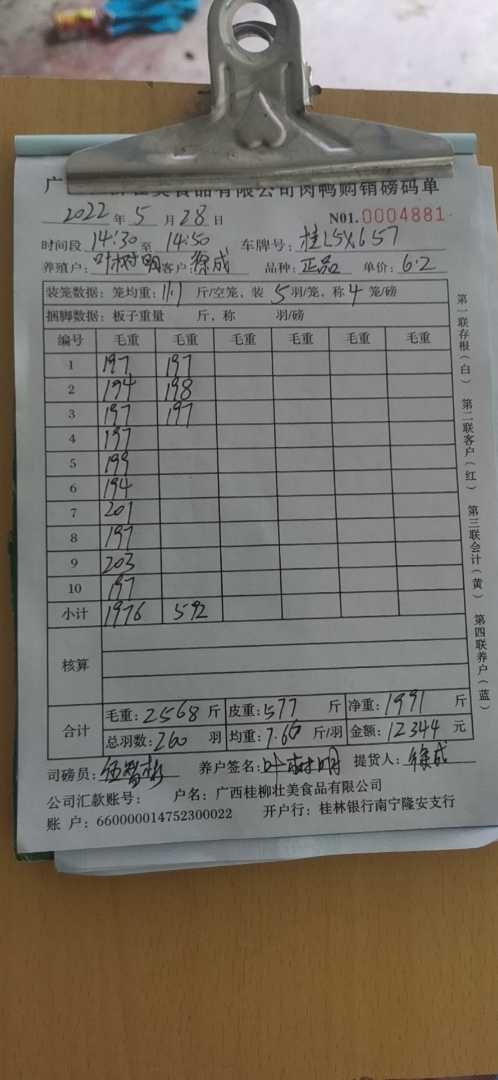 食品有限公司肉鸭购销磅码单
2022年5月28日 N01.0004881
时间段14:30至14:50 车牌号:桂L5X657
养殖户:叶树明 客户徐成 品种:正品 单价:6.2
装笼数据:笼均重:11.1斤/空笼,装5羽/笼,称4笼/磅
捆脚数据:板子重量 斤,称 羽/磅
编号 毛重 毛重 毛重 毛重 毛重 毛重
1 197 197
2 194 198
3 197 197
4 197
5 199
6 194
7 201
8 197
9 203
10 197
小计 1976 592
核算
合计 毛重:2568斤 皮重:577斤 净重:1991斤
总羽数:260羽 均重:7.66斤/羽 金额:12344元
司磅员: 养户签名:叶树明 提货人:徐成
公司汇款账号: 户名:广西桂柳壮美食品有限公司
账户:660000014752300022 开户行:桂林银行南宁隆安支行
第一联存根(白) 第二联客户(红) 第三联会计(黄) 第四联养户(蓝)